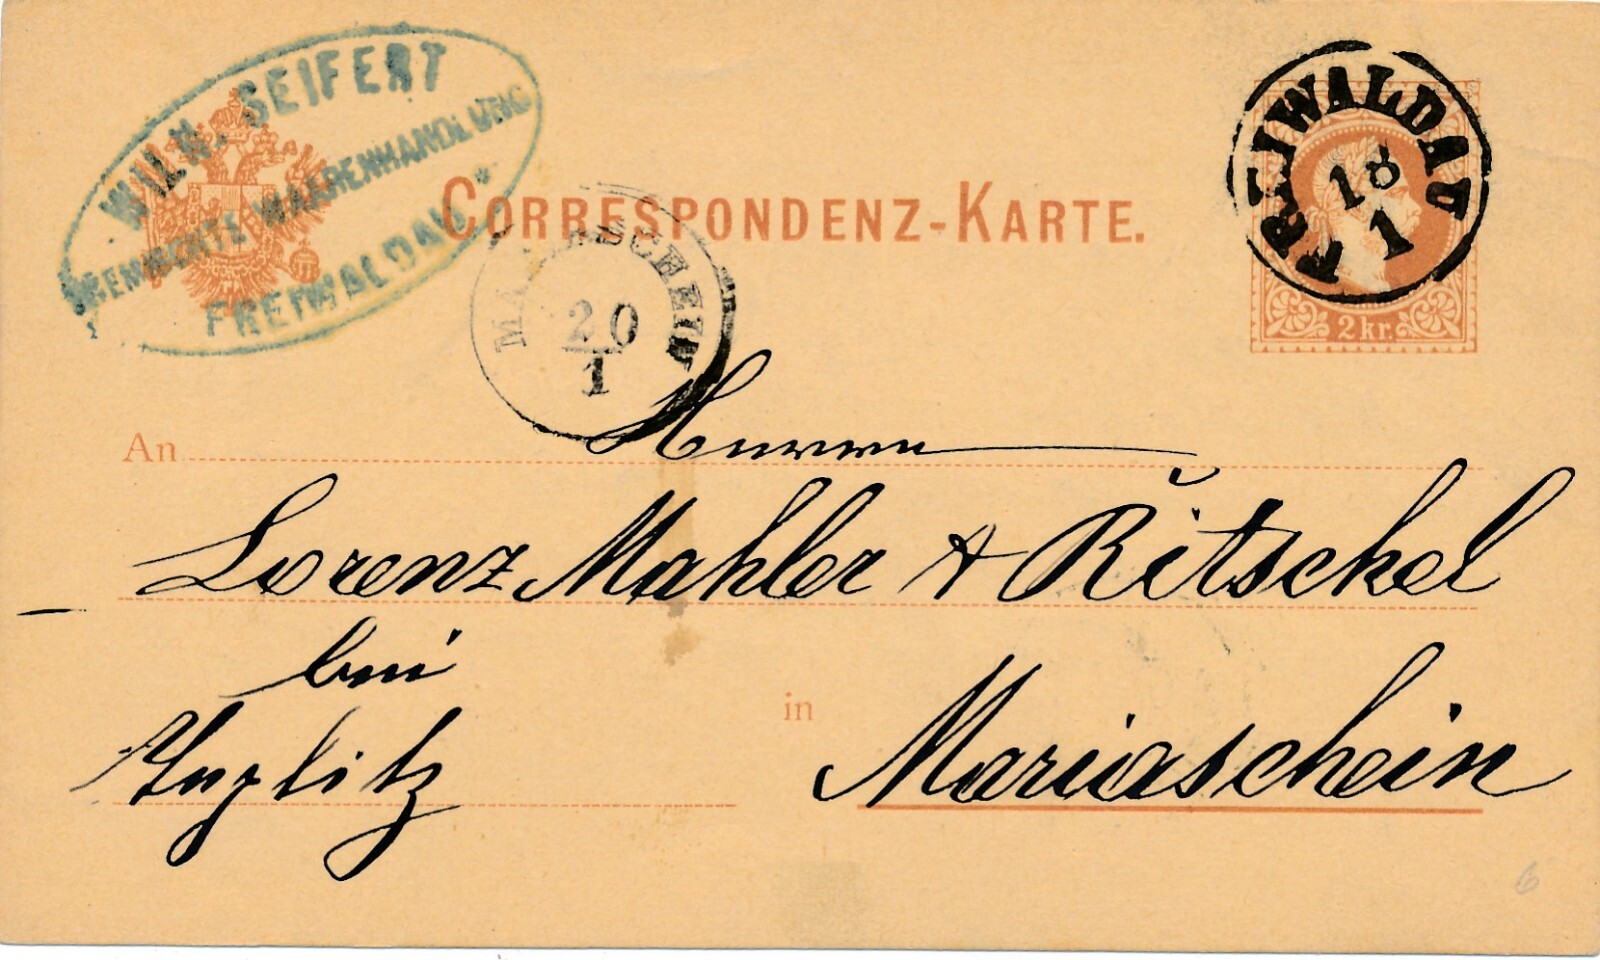 WILH. SEIFERT
GEMISCHTE WAARENHANDLUNG
FREIWALDAU *
CORRESPONDENZ-KARTE.
FREIWALDAU
18
1
2 kr.
MARIASCHEIN
20
1
An Herren
Lorenz Mahler & Ritschel
bei
Teplitz
in Mariaschein
6